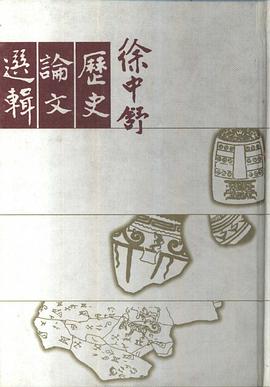 徐中舒
歷史
論文
選輯